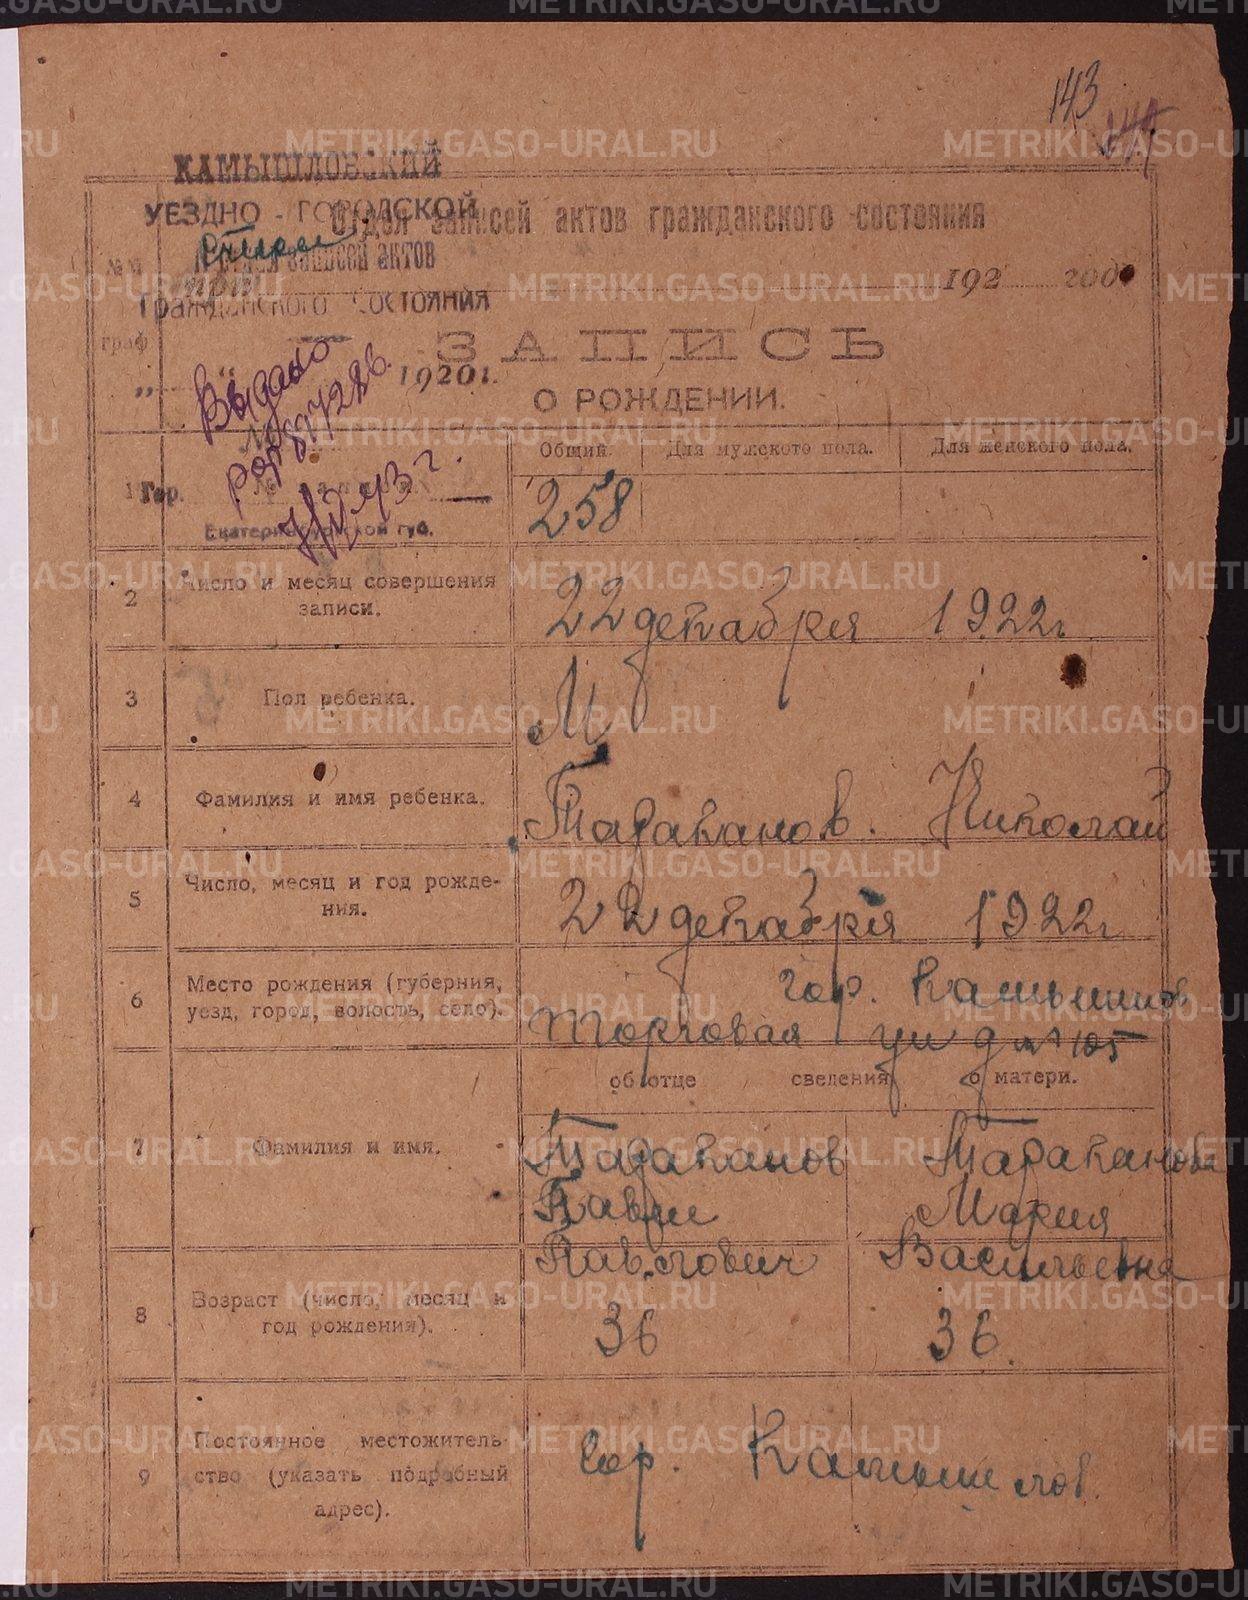 143
КАМЫШЛОВСКИЙ
УЕЗДНО - ГОРОДСКОЙ
Отдел записей актов гражданского состояния
Отдел записей актов
192 года
Гражданского состояния
граф
ЗАПИСЬ
1920 г.
О РОЖДЕНИИ.
Выдано
Общий.
Для мужского пола.
Для женского пола.
1
Гор.
258
Екатеринбургской губ.
2
Число и месяц совершения
записи.
22 декабря 1922 г
3
Пол ребенка.
М
4
Фамилия и имя ребенка.
Тараканов. Николай
5
Число, месяц и год рожде-
ния.
22 декабря 1922 г
6
Место рождения (губерния,
уезд, город, волость, село).
гор. Камышлов
Торговая ул д № 105
об отце сведения о матери.
7
Фамилия и имя.
Тараканов
Павел
Павлович
Тараканова
Мария
Васильевна
8
Возраст (число, месяц и
год рождения).
36
36.
9
Постоянное местожитель
ство (указать подробный
адрес).
гор. Камышлов.
METRIKI.GASO-URAL.RU